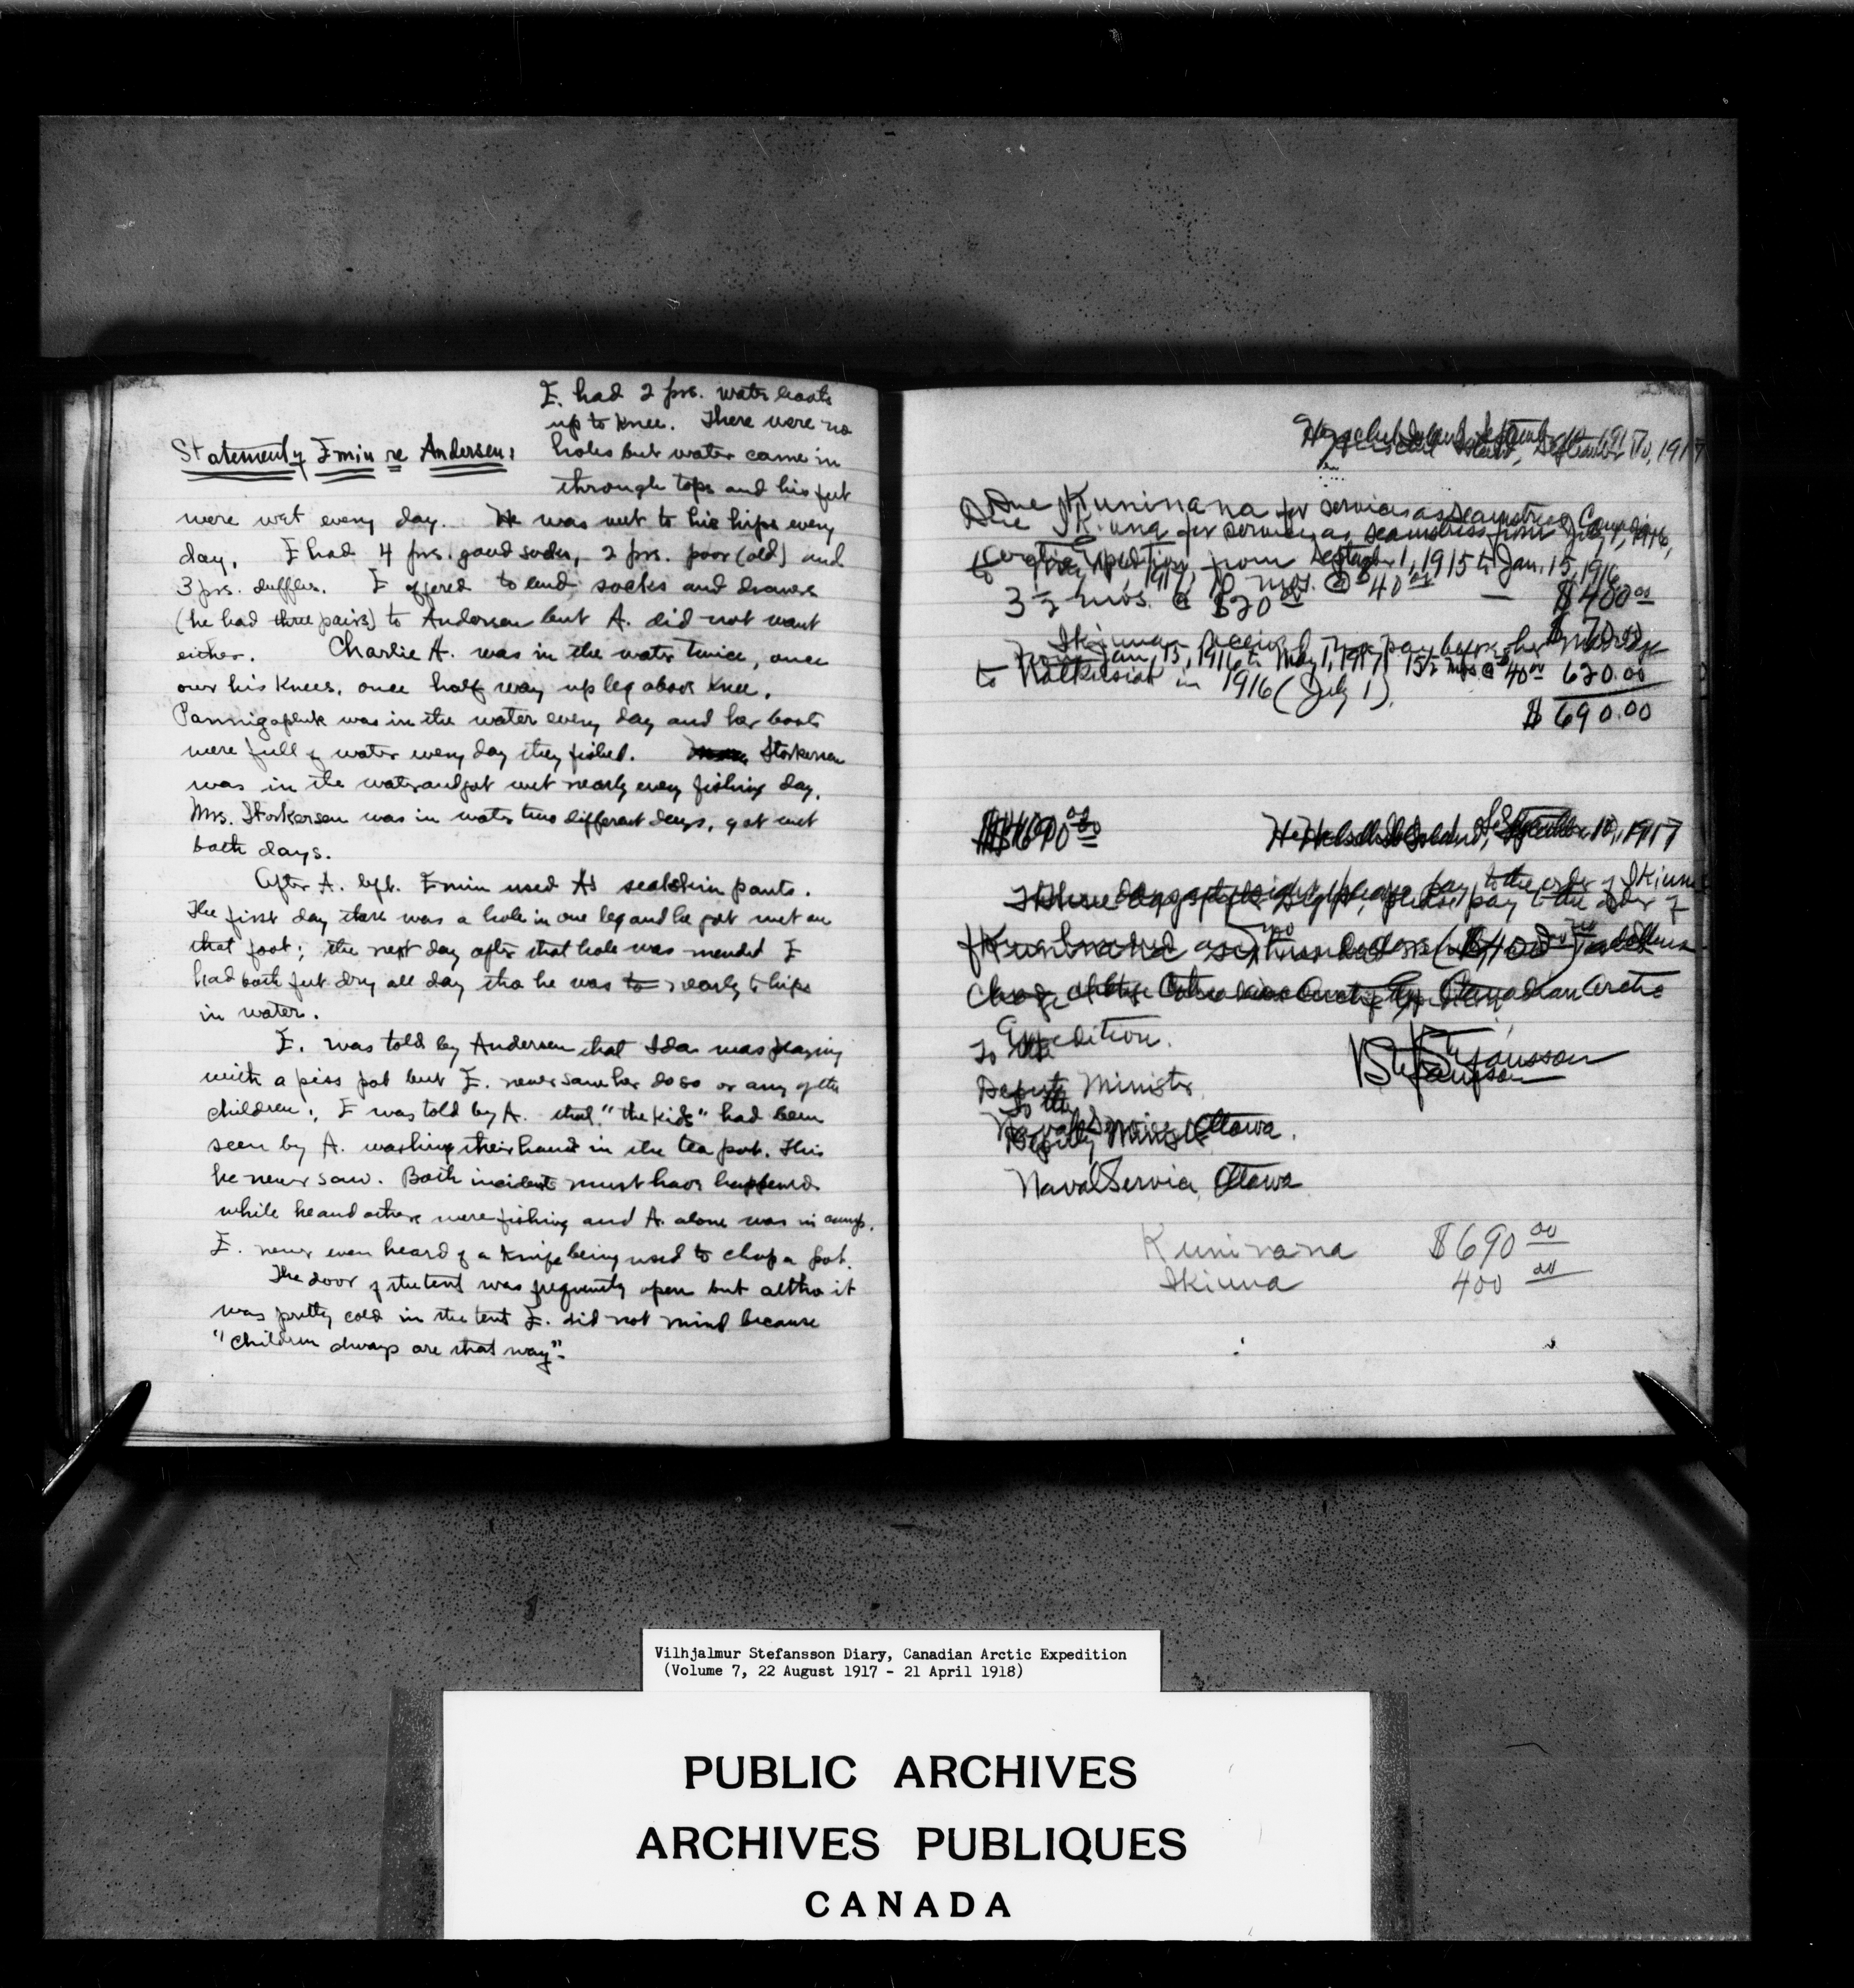 E. had 2 prs. water boots
up to knee. There were no
Statement of Emiu re Andersen:
holes but water came in
through tops and his feet
were wet every day. He was wet to his hips every
day. E had 4 prs. good socks, 2 prs. poor (old) and
3 prs. duffles. E offered to lend socks and drawers
(he had three pairs) to Andersen but A. did not want
either. Charlie A. was in the water twice, once
over his knees, once half way up leg above knee.
Pannigapluk was in the water every day and her boots
were full of water every day they fished. Storkersen
was in the water and got wet nearly every fishing day.
Mrs. Storkersen was in water two different days, got wet
both days.
After A. left. Emiu used A's sealskin pants.
The first day there was a hole in one leg and he got wet on
that foot; the next day after that hole was mended E
had both feet dry all day tho he was to nearly to hips
in water.
E. was told by Andersen that Ida was playing
with a piss pot but E. never saw her do so or any of the
children; E was told by A. that "the kids" had been
seen by A. washing their hands in the tea pot. This
he never saw. Both incidents must have happened
while he and others were fishing and A. alone was in camp.
E. never even heard of a knife being used to chop a pot.
The door of the tent was frequently open but altho it
was pretty cold in the tent E. did not mind because
"Children always are that way".
September 10, 1917
Due Kuninana for services as seamstress Canadian
Due Ikiuna for services as seamstress from July 1, 1916,
Arctic Expedition, from September 1, 1915 to Jan. 15, 1916
to 1917, 10 mos. @ $40 00 — $400 00
3 ½ mos. @ $20 00 $70.00
Ikiuna received no pay before her marriage
from Jan. 15, 1916 to May 1, 1917 15½ mos @ 40 00 620.00
to Natkusiak in 1916 (July 1).
$690.00
$690 00
September 10, 1917
pay to the order of Ikiuna
Canadian Arctic
Expedition.
To the
Deputy Minister
V Stefansson
To the
Naval Service, Ottawa.
Deputy Minister
Naval Service, Ottawa
Kuninana $690 00
Ikiuna 400 00
Vilhjalmur Stefansson Diary, Canadian Arctic Expedition
(Volume 7, 22 August 1917 - 21 April 1918)
PUBLIC ARCHIVES
ARCHIVES PUBLIQUES
CANADA